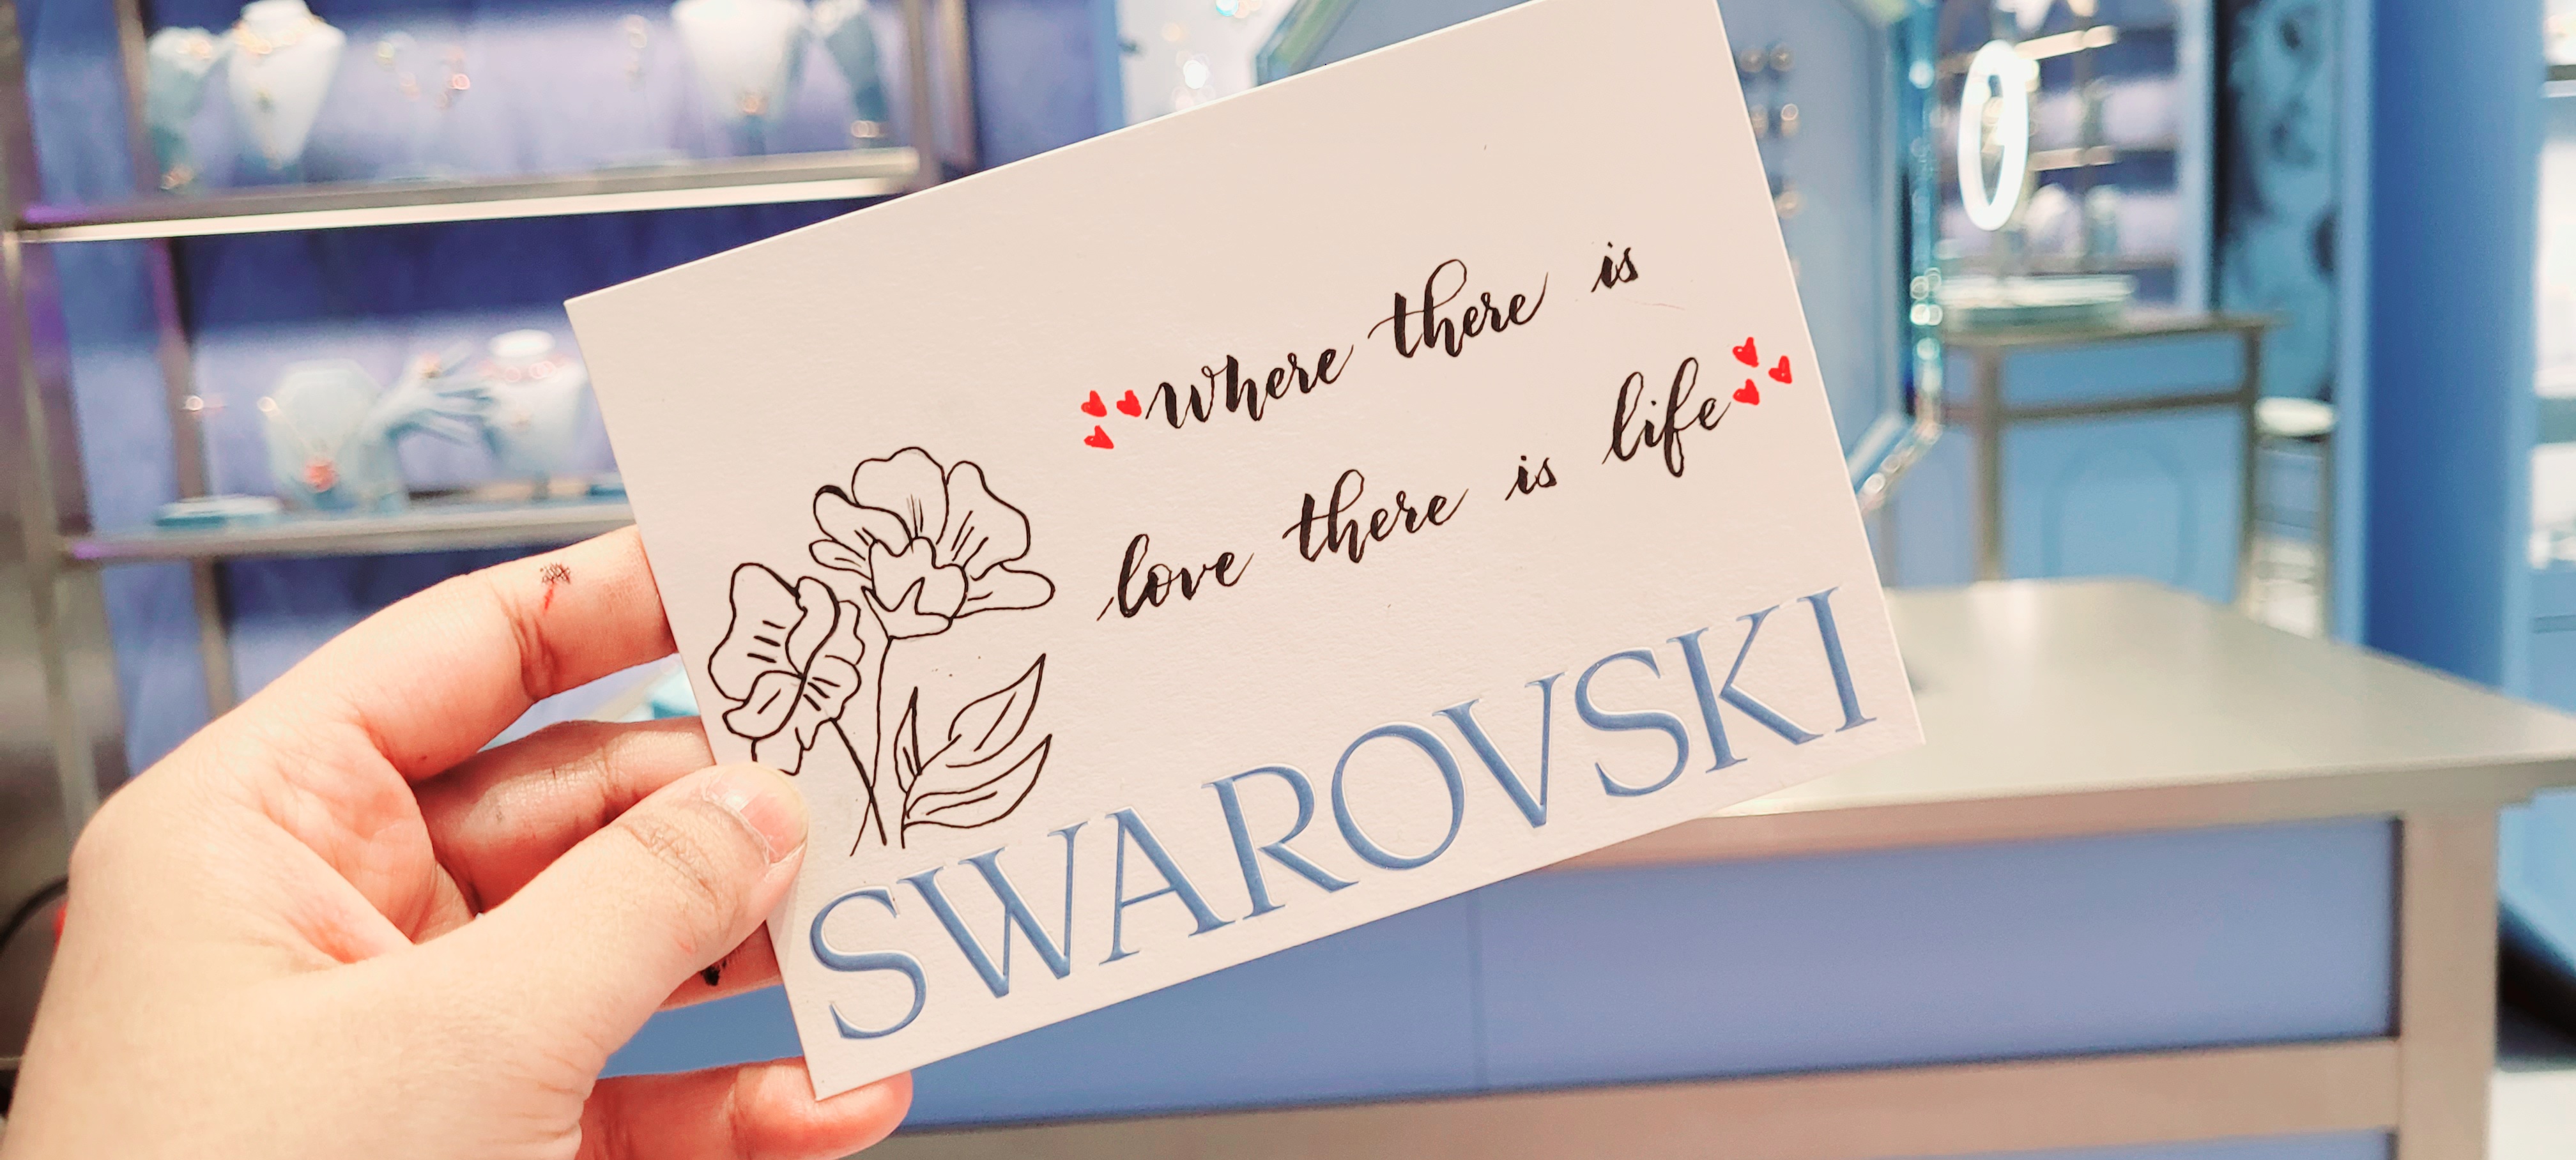 Where there is
love there is life
SWAROVSKI